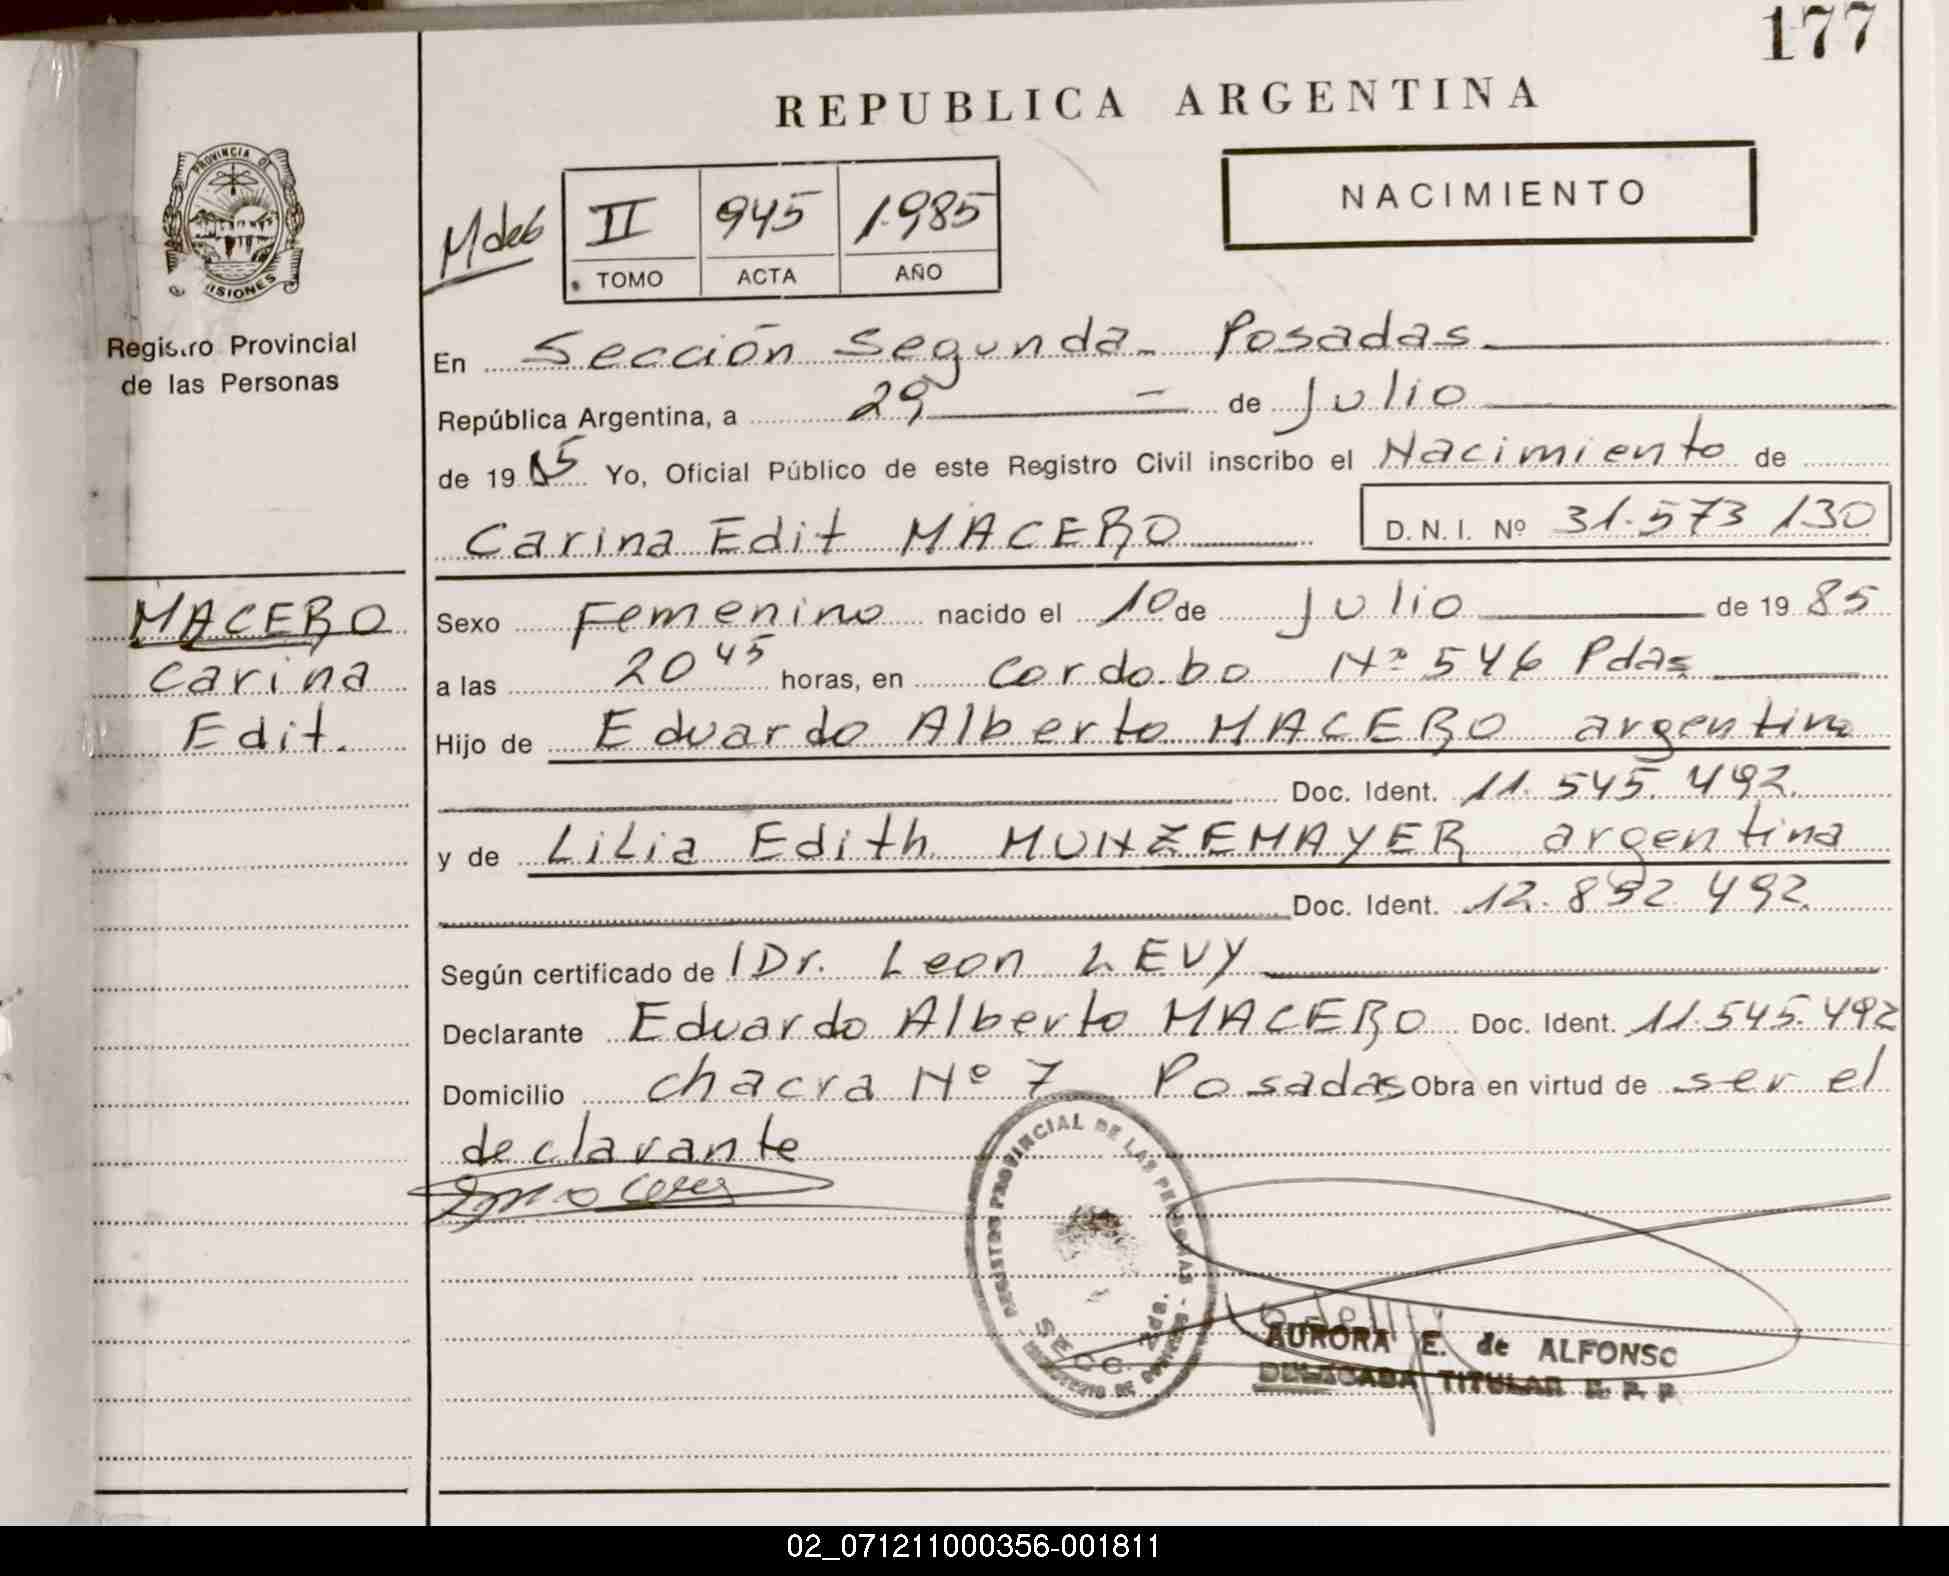 177
REPUBLICA ARGENTINA
PROVINCIA DE MISIONES
Registro Provincial
de las Personas
II 945 1.985
TOMO ACTA AÑO
NACIMIENTO
En Sección Segunda - Posadas
República Argentina, a 29 - de Julio
de 19 85 Yo, Oficial Público de este Registro Civil inscribo el Nacimiento de
Carina Edit MACERO D. N. I. Nº 31.573 130
MACERO
Carina
Edit.
Sexo Femenino nacido el 10 de Julio de 19 85
a las 20 45 horas, en Cordoba Nº 546 Pdas
Hijo de Eduardo Alberto MACERO argentino
Doc. Ident. 11.545.492.
y de Lilia Edith MUNZEMAYER argentina
Doc. Ident. 12.892 492.
Según certificado de Dr. Leon LEVY
Declarante Eduardo Alberto MACERO Doc. Ident. 11.545.492
Domicilio chacra Nº 7 Posadas Obra en virtud de ser el
declarante
REGISTRO PROVINCIAL DE LAS PERSONAS
SECC. 2da.
AURORA E. de ALFONSO
DELEGADA TITULAR R. P. P
02_071211000356-001811